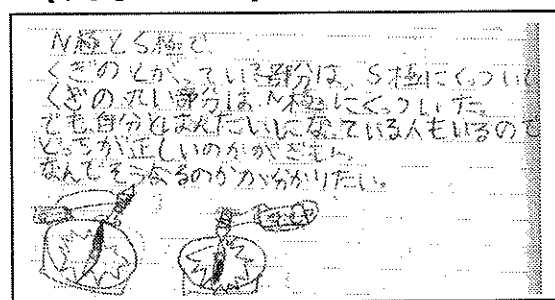 N極とS極で
くぎのとがっている部分は、S極にくっついて
くぎの丸い部分はN極にくっついた。
でも自分とはんたいになっている人もいるので
どっちが正しいのかがぎもん。
なんでそうなるのかが分かりたい。